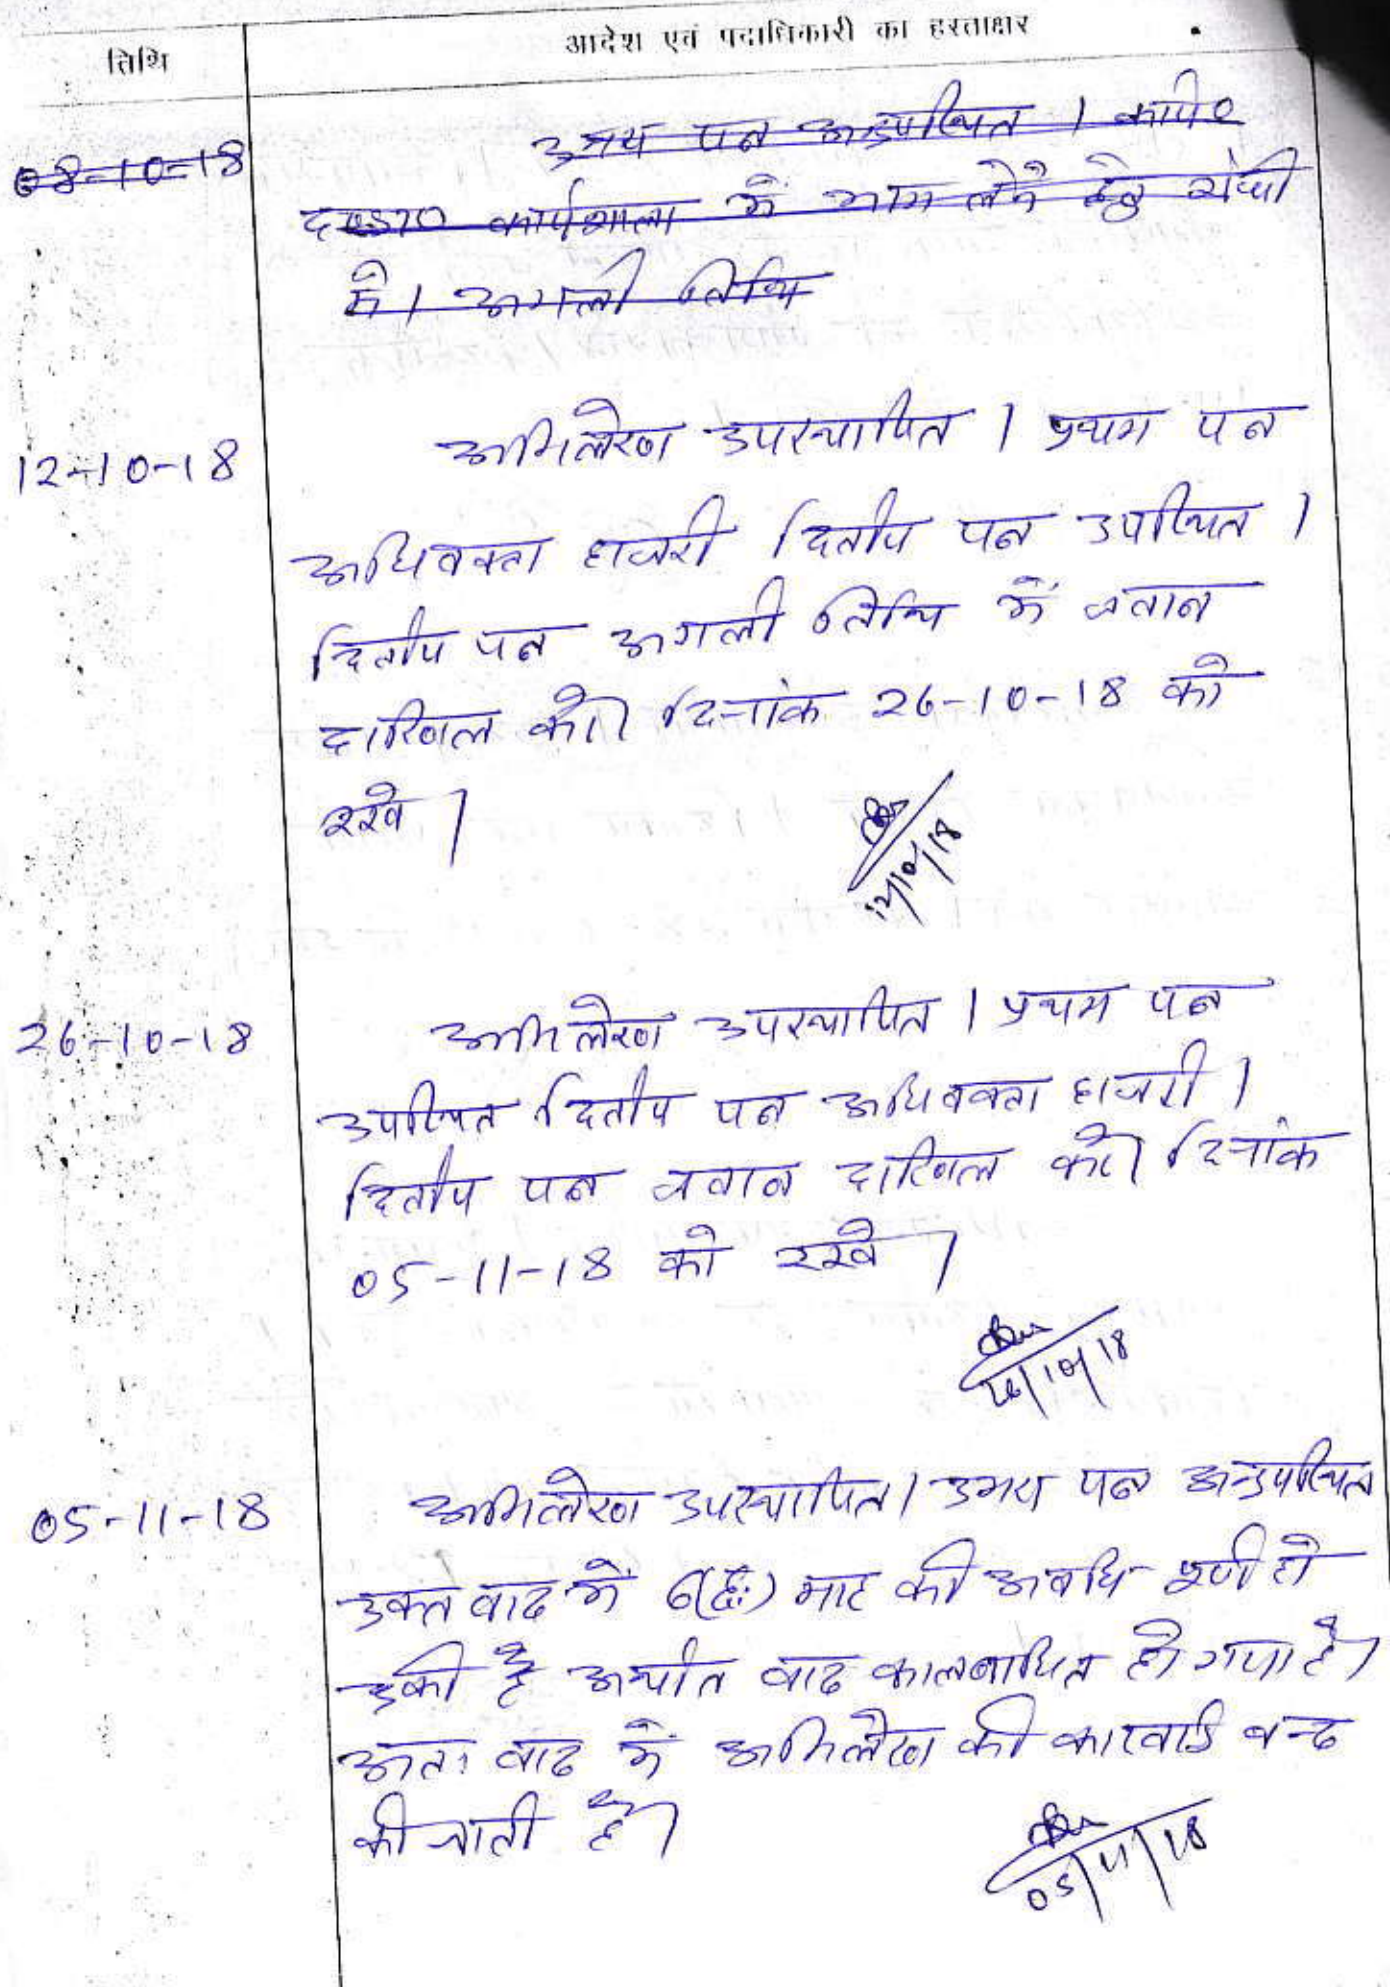 तिथि
आदेश एवं पदाधिकारी का हस्ताक्षर
08-10-18
उभय पक्ष अनुपस्थित । कार्य०
दण्डा० कार्यशाला में भाग लेने हेतु रांची
में। अगली तिथि
12-10-18
अभिलेख उपस्थापित । प्रथम पक्ष
अधिवक्ता हाजरी द्वितीय पक्ष उपस्थित ।
द्वितीय पक्ष अगली तिथि में
दाखिल करें। दिनांक 26-10-18 को
रखें ।
12/10/18
26-10-18
अभिलेख उपस्थापित । प्रथम पक्ष
उपस्थित द्वितीय पक्ष अधिवक्ता हाजरी ।
द्वितीय पक्ष जवाब दाखिल करें। दिनांक
05-11-18 को रखें ।
26/10/18
05-11-18
अभिलेख उपस्थापित। उभय पक्ष अनुपस्थित
उक्त वाद में 6(छः) माह की अवधि पूर्ण हो
चुकी है अर्थात वाद कालबाधित हो गया है।
अतः वाद में अभिलेख की कारवाई बन्द
की जाती है।
05/11/18